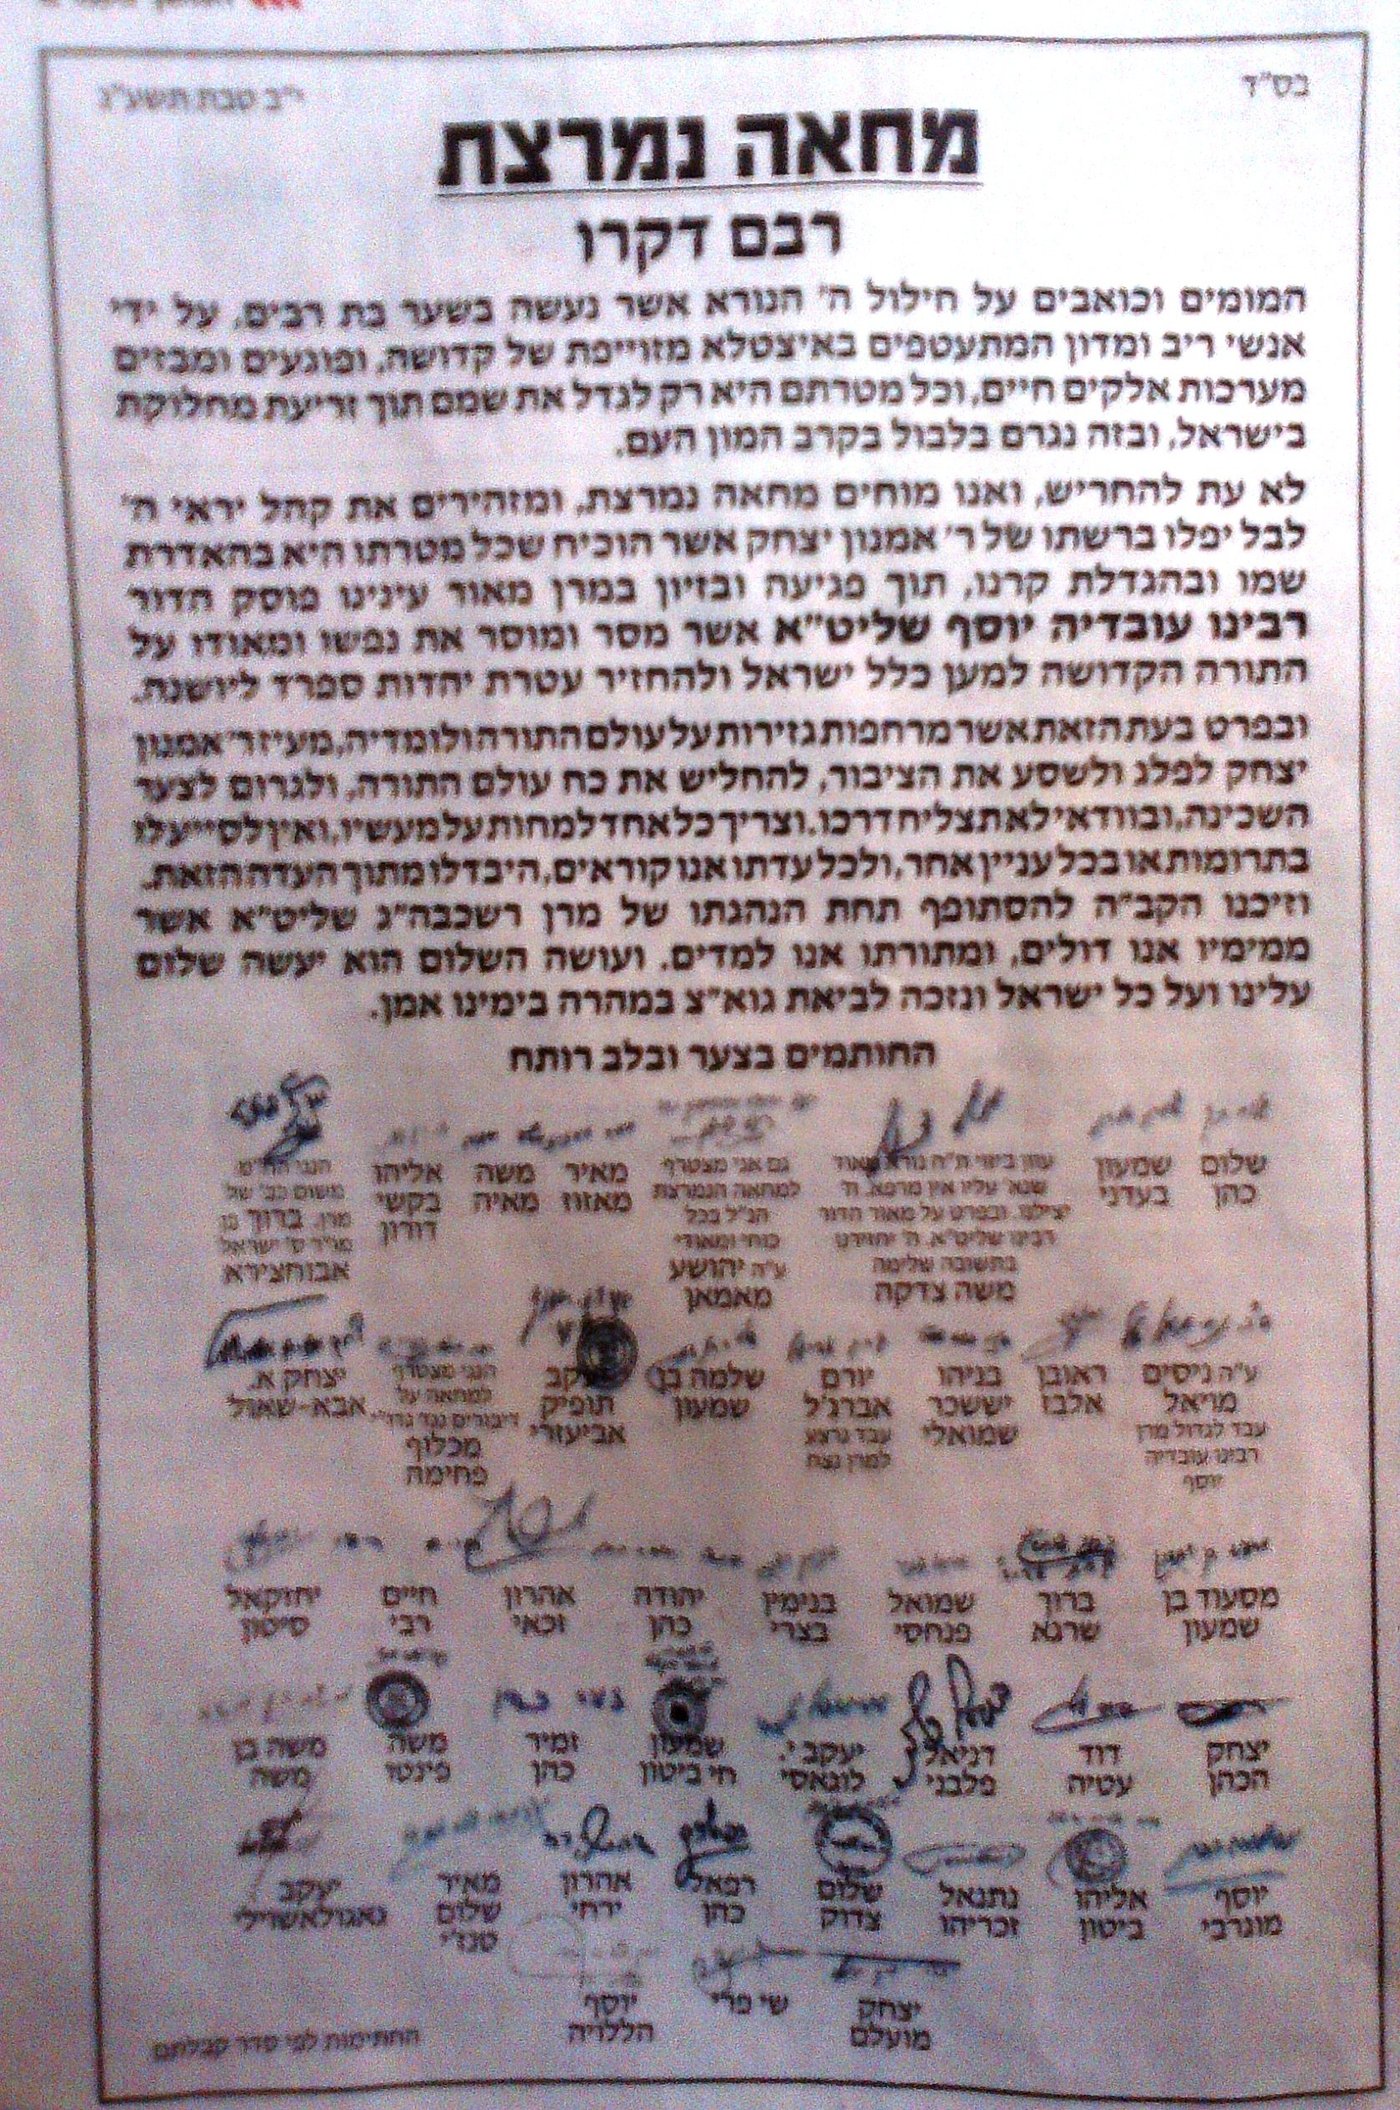 בס"ד
י"ב טבת תשע"ג
מחאה נמרצת
רבם דקרו
המומים וכואבים על חילול ה' הנורא אשר נעשה בשער בת רבים, על ידי
אנשי ריב ומדון המתעטפים באיצטלא מזוייפת של קדושה, ופוגעים ומבזים
מערכות אלקים חיים, וכל מטרתם היא רק לגדל את שמם תוך זריעת מחלוקת
בישראל, ובזה נגרם בלבול בקרב המון העם.
לא עת להחריש, ואנו מוחים מחאה נמרצת, ומזהירים את קהל יראי ה'
לבל יפלו ברשתו של ר' אמנון יצחק אשר הוכיח שכל מטרתו היא בהאדרת
שמו ובהגדלת קרנו, תוך פגיעה ובזיון במרן מאור עינינו פוסק הדור
רבינו עובדיה יוסף שליט"א אשר מסר ומוסר את נפשו ומאודו על
התורה הקדושה למען כלל ישראל ולהחזיר עטרת יהדות ספרד ליושנה.
ובפרט בעת הזאת אשר מרחפות גזירות על עולם התורה ולומדיה, מעיז ר' אמנון
יצחק לפלג ולשסע את הציבור, להחליש את כח עולם התורה, ולגרום לצער
השכינה, ובוודאי לא תצליח דרכו. וצריך כל אחד למחות על מעשיו, ואין לסייע לו
בתרומות או בכל עניין אחר, ולכל עדתו אנו קוראים, היבדלו מתוך העדה הזאת.
וזיכנו הקב"ה להסתופף תחת הנהגתו של מרן רשכבה"ג שליט"א אשר
ממימיו אנו דולים, ומתורתו אנו למדים. ועושה השלום הוא יעשה שלום
עלינו ועל כל ישראל ונזכה לביאת גוא"צ במהרה בימינו אמן.
החותמים בצער ובלב רותח
שלום כהן
שמעון בעדני
עוון ביזוי ת"ח נורא מאוד
שנא' עליו אין מרפא, ה'
יצילנו. ובפרט על מאור הדור
רבינו שליט"א. ה' יחזירנו
בתשובה שלימה
משה צדקה
גם אני מצטרף
למחאה הנמרצת
הנ"ל בכל
כוחי ומאודי
ע"ה יהושע
מאמאן
מאיר מאזוז
משה מאיה
אליהו בקשי דורון
משום כב' של
מרן. ברוך בן
מו"ר ס' ישראל
אבוחצירא
ע"ה ניסים
מויאל
עבד לגדול מרן
רבינו עובדיה
יוסף
ראובן אלבז
בניהו יששכר שמואלי
יורם אברג'ל
עבד נרצע
למרן נצח
שלמה בן שמעון
יעקב תופיק אביעזרי
הנני מצטרף
למחאה על
מכלוף פחימה
יצחק א. אבא-שאול
מסעוד בן שמעון
ברוך שרגא
שמואל פנחסי
בנימין בצרי
יהודה כהן
אהרון זכאי
חיים רבי
יחזקאל סיטון
יצחק הכהן
דוד עטיה
דניאל פלבני
יעקב י. לוגאסי
שמעון חי ביטון
זמיר כהן
משה פינטו
משה בן משה
יוסף מוגרבי
אליהו ביטון
נתנאל זכריהו
שלום צדוק
רפאל כהן
אהרון ירחי
מאיר שלום
יעקב גאגולאשוילי
יצחק מועלם
שי פרי
יוסף הללויה
החתימות לפי סדר קבלתם